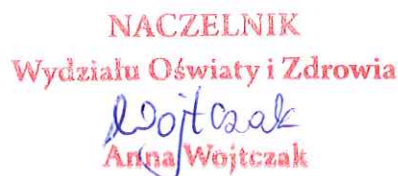 NACZELNIK
Wydziału Oświaty i Zdrowia
Wojtczak
Anna Wojtczak